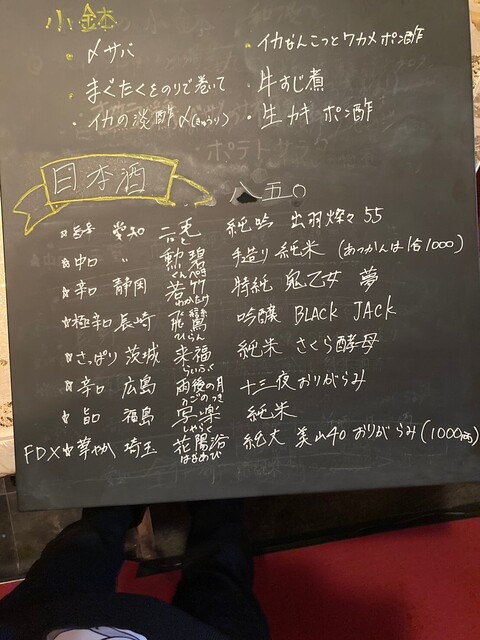 小鉢
・〆サバ
・イカなんこつとワカメポン酢
・まぐたくをのりで巻いて
・牛すじ煮
・イカの淡酢〆(きゅうり)
・生カキポン酢
ポテトサラダ
日本酒 八五〇
☆旨口 愛知 二兎 純吟 出羽燦々55
にと
☆中口 〃 勲碧 手造り純米 (あつかんは1合1000)
くんぺき
☆辛口 静岡 若竹 特純 鬼乙女 夢
わかたけ
☆極辛口 長崎 飛鸞 吟醸 BLACK JACK
ひらん
☆さっぱり 茨城 来福 純米 さくら酵母
らいふく
☆辛口 広島 雨後の月 十三夜おりがらみ
うごのつき
☆旨口 福島 写楽 純米
しゃらく
FDX☆華やか 埼玉 花陽浴 純大 美山40 おりがらみ(1000円)
はなあび